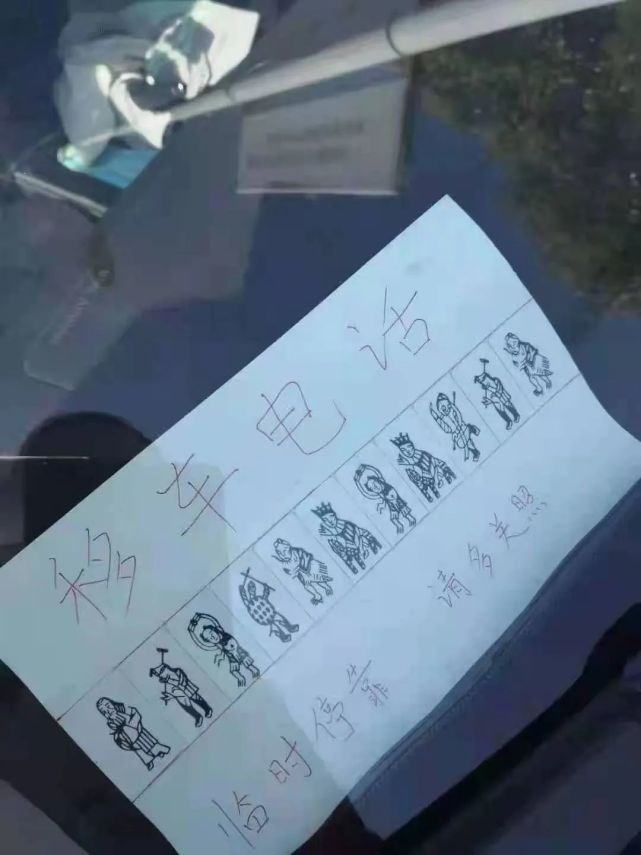 移车电话
临时停靠 请多关照